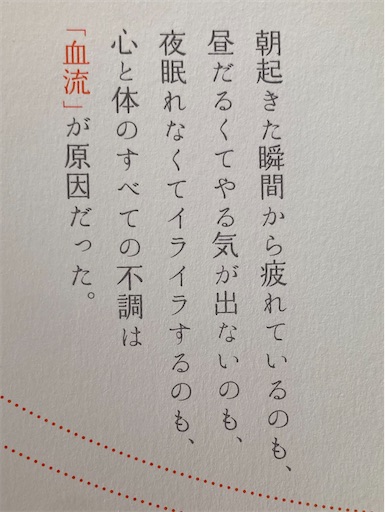 朝起きた瞬間から疲れているのも、
昼だるくてやる気が出ないのも、
夜眠れなくてイライラするのも、
心と体のすべての不調は
「血流」が原因だった。